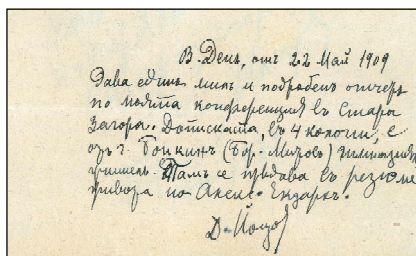 В. День, отъ 22 Май 1909
Дава единъ милъ и подробенъ отчетъ
по моята конференция въ Стара
Загора. Дописката, въ 4 колони, е
отъ г. Бойкинъ (Бр. Мировъ) гимназиял.
учитель. Тамъ се предава въ резюме
говора по
Д-Йоцов